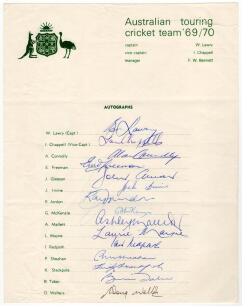 Australian touring
cricket team '69/70
captain W. Lawry
vice captain I. Chappell
manager F. W. Bennett
AUTOGRAPHS
W. Lawry (Capt.)
I. Chappell (Vice-Capt.)
A. Connolly Alan Connolly
E. Freeman Eric Freeman
J. Gleeson
J. Irvine
R. Jordon
G. McKenzie
A. Mallett Ashley Mallett
L. Mayne Laurie Mayne
I. Redpath Ian Redpath
P. Sheahan
K. Stackpole
B. Taber
D. Walters Doug Walters